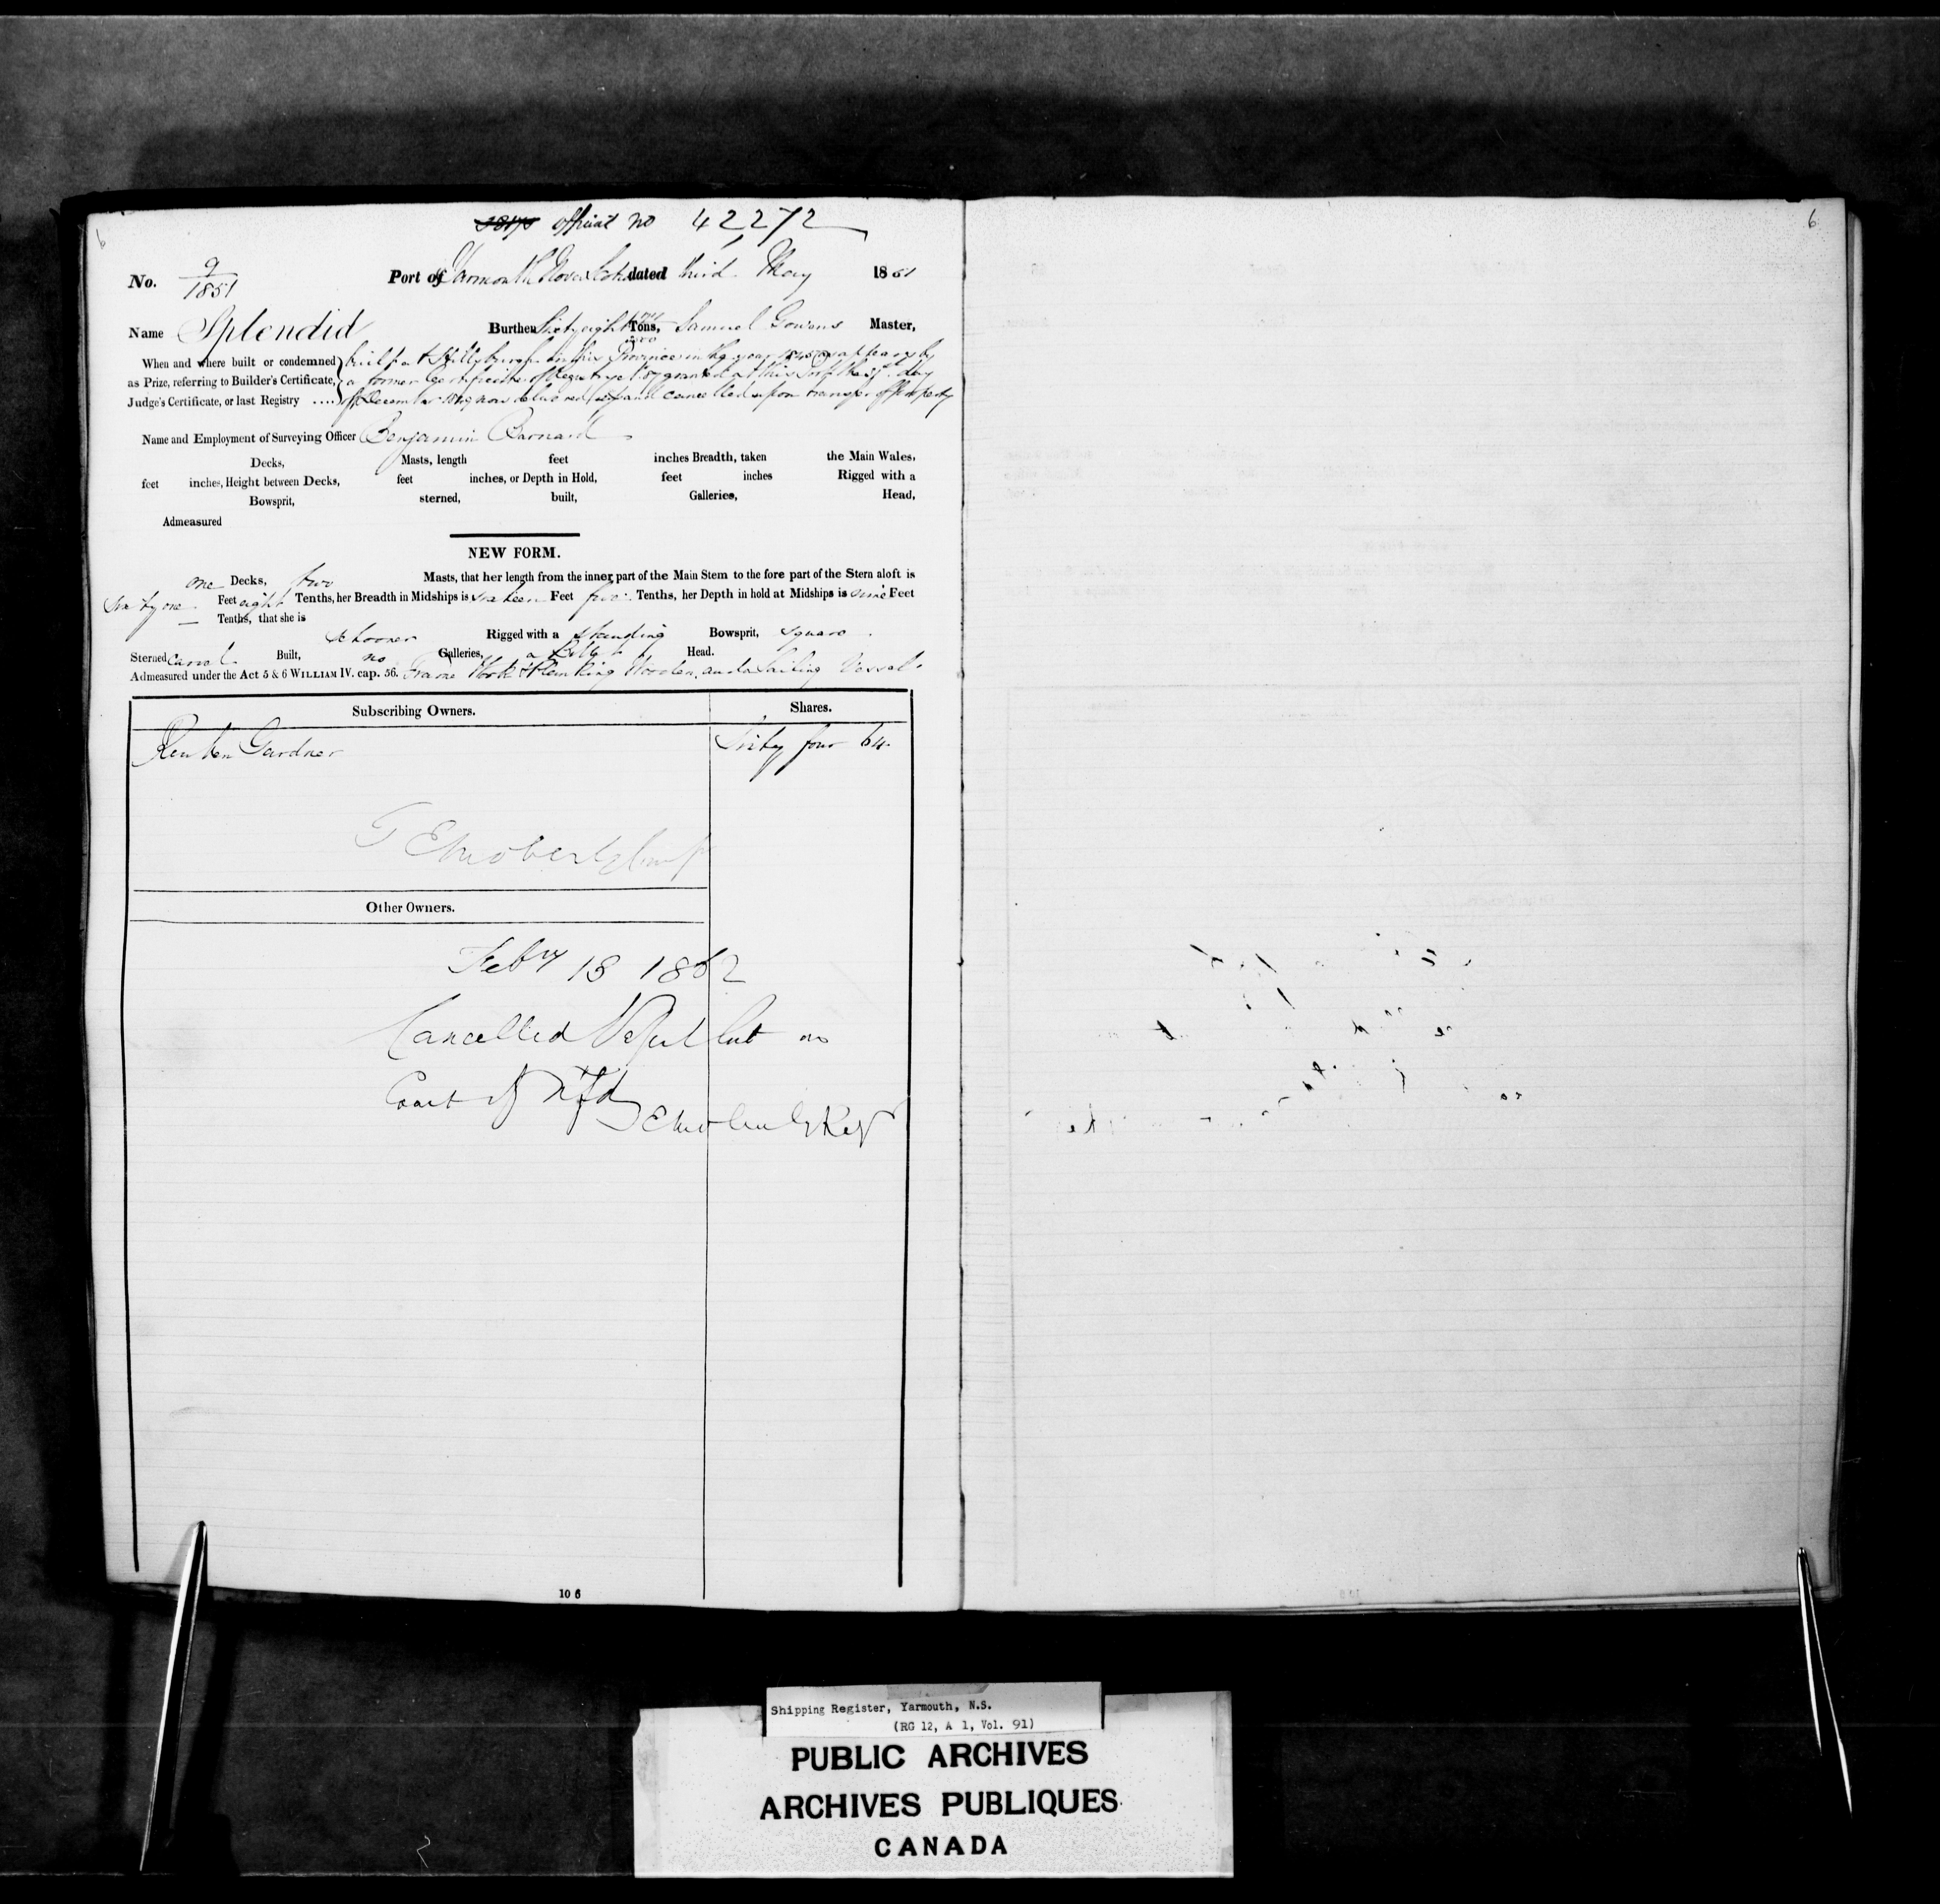 6
official no 42272
No. 9/1851 Port of Yarmouth Nova Scotia dated third May 1851
Name Splendid Burthen Sixty eight Tons, Samuel Gowans Master,
When and where built or condemned built at in this Province in the year 1845 as appears by
as Prize, referring to Builder's Certificate, a former Certificate of Registry granted at this Port the day
Judge's Certificate, or last Registry .... of December now delivered up and cancelled upon transfer of property
Name and Employment of Surveying Officer Benjamin Barnard
Decks, Masts, length feet inches Breadth, taken the Main Wales,
feet inches, Height between Decks, feet inches, or Depth in Hold, feet inches Rigged with a
Bowsprit, sterned, built, Galleries, Head,
Admeasured
NEW FORM.
one Decks, two Masts, that her length from the inner part of the Main Stem to the fore part of the Stern aloft is
Sixty one Feet eight Tenths, her Breadth in Midships is sixteen Feet five Tenths, her Depth in hold at Midships is nine Feet
Tenths, that she is
Schooner Rigged with a standing Bowsprit, square
Sterned Carvel Built, no Galleries, a Billet Head.
Admeasured under the Act 5 & 6 WILLIAM IV. cap. 56. Frame Work & Planking Wooden, and a Sailing Vessel.
Subscribing Owners. Shares.
Reuben Gardner Sixty four 64
Other Owners.
Feby 18 1862
Cancelled Vessel lost on
Coast of Nfd
10 6
6
Shipping Register, Yarmouth, N.S.
(RG 12, A 1, Vol. 91)
PUBLIC ARCHIVES
ARCHIVES PUBLIQUES
CANADA